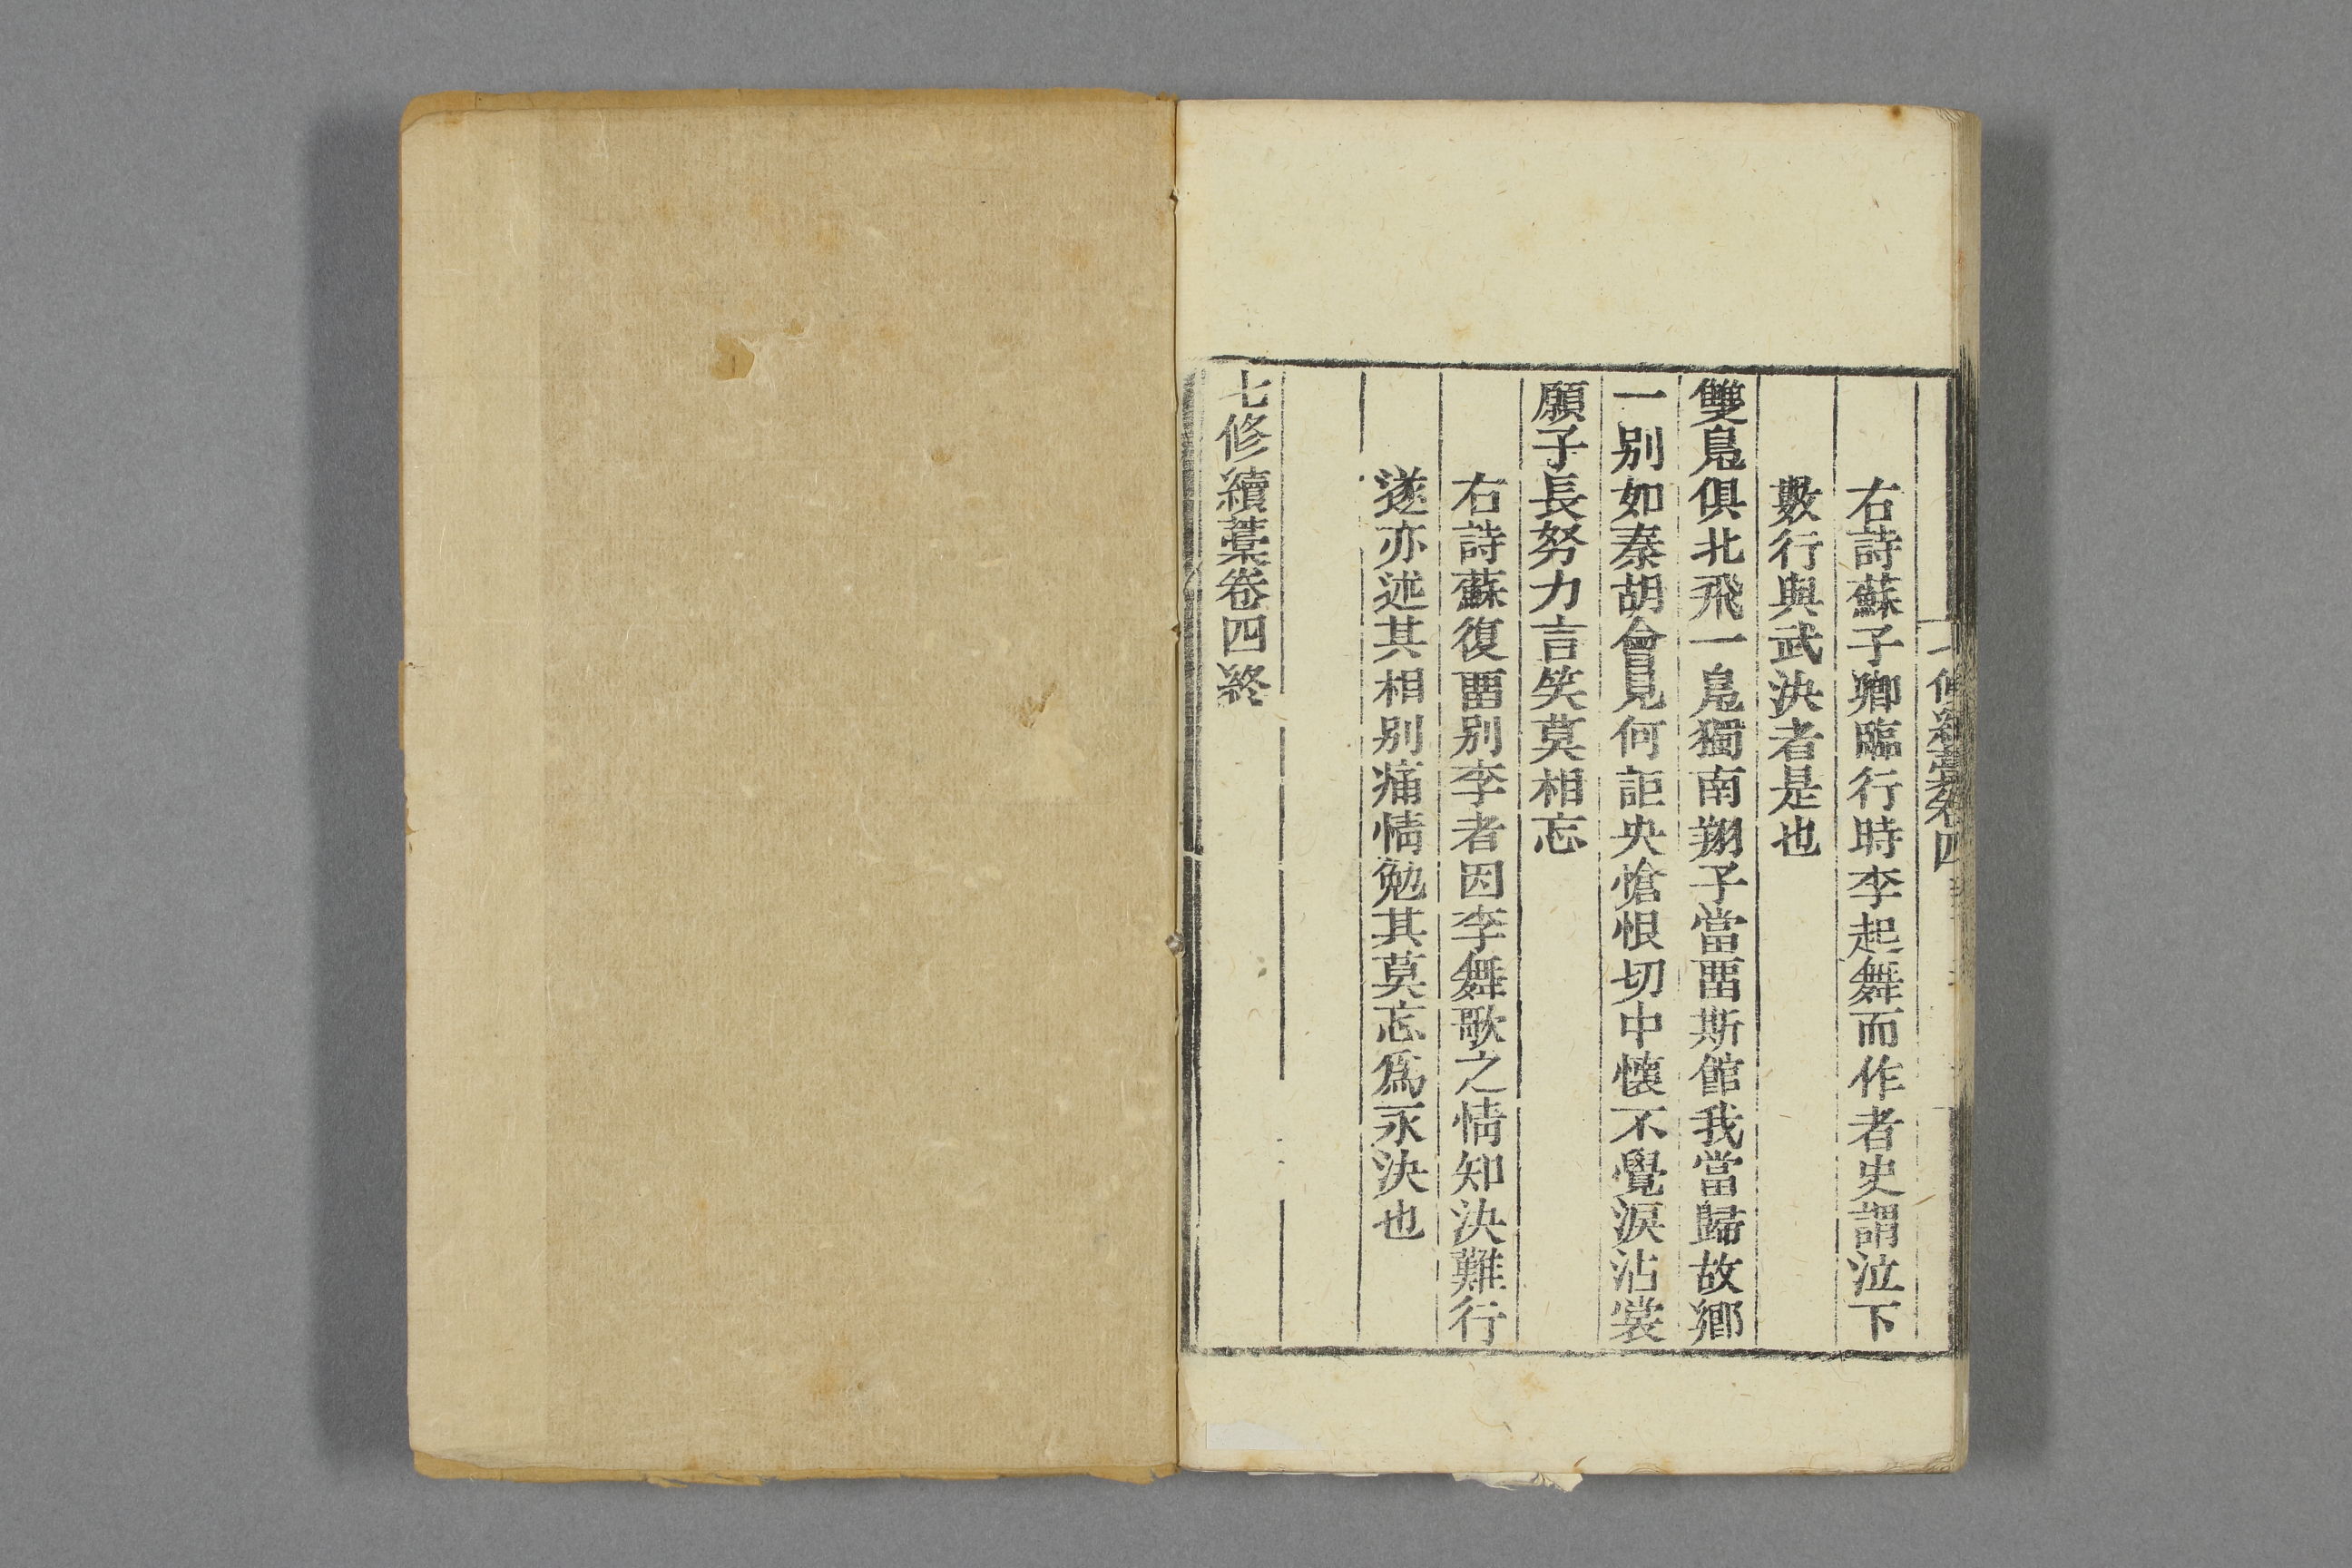 右詩蘇子卿臨行時李起舞而作者史謂泣下
數行與武決者是也
雙鳧俱北飛一鳧獨南翔子當畱斯館我當歸故鄉
一别如秦胡會見何詎央愴恨切中懷不覺淚沾裳
願子長努力言笑莫相忘
右詩蘇復畱别李者因李舞歌之情知決難行
遂亦述其相别痛情勉其莫忘爲永決也
七修續藁卷四終